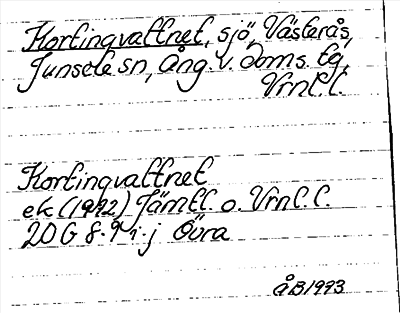 Kortingvattnet, sjö, Västerås,
Junsele sn, Ång. v. doms. tg,
Vrnl. l.
Kortingvattnet
ek (1972) Jämtl. o. Vrnl. l.
20 G 8-9 i-j Övra
ÅB 1993